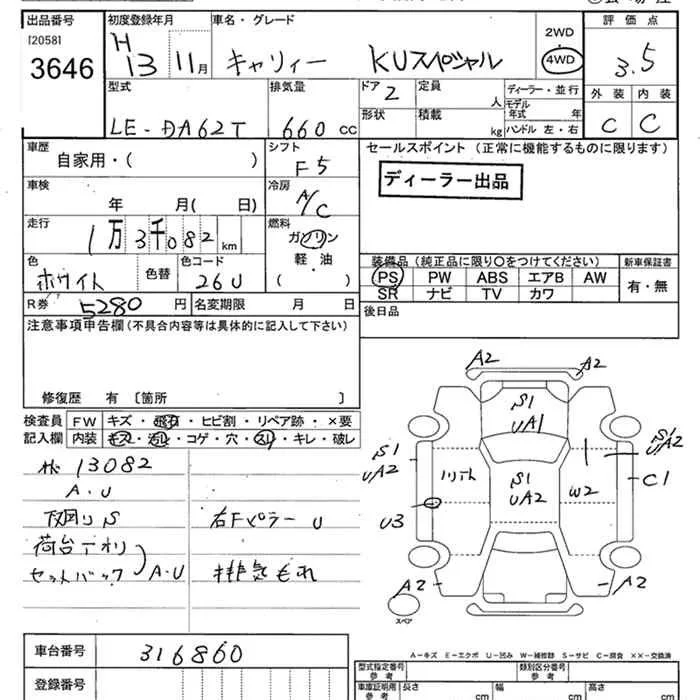 出品番号 初度登録年月 車名・グレード 評価点
[2058]
3646
H 13 11月 キャリィー KUスペシャル 2WD 4WD 3.5
型式 排気量 ドア 2 定員 人 ディーラー・並行 外装 内装
LE-DA62T 660 CC 形状 積載 kg モデル年式 年 ハンドル 左・右 C C
車歴 シフト セールスポイント (正常に機能するものに限ります)
自家用・( ) F5
ディーラー出品
車検 冷房
年 月( 日) A/C
走行 燃料
1万3千082 km ガソリン
軽油
( )
色 色コード
ホワイト 色替 26U
装備品(純正品に限り○をつけてください) 新車保証書
PS PW ABS エアB AW 有・無
SR ナビ TV カワ
R券 5280 円 名変期限 月 日 後日品
注意事項申告欄(不具合内容等は具体的に記入して下さい)
修復歴 有 〔箇所 〕
検査員 FW キズ・飛石・ヒビ割・リペア跡・×要
記入欄 内装 キズ・汚れ・コゲ・穴・スレ・キレ・破レ
13082
A.U
下回りS 右Fピラー U
荷台アオリ
セットバック A.U 排気もれ
A2 A2
S1
UA1
S1
UA2
S1
UA2
リヤト
S1
UA2
W2
C1
U3
A2 A2
スペア
A-キズ E-エクボ U-凹み W-補修跡 S-サビ C-腐食 XX-交換済
車台番号 316860
登録番号
型式指定番号 参考 類別区分番号 参考
車庫証明用 参考 長さ cm 幅 cm 高さ cm